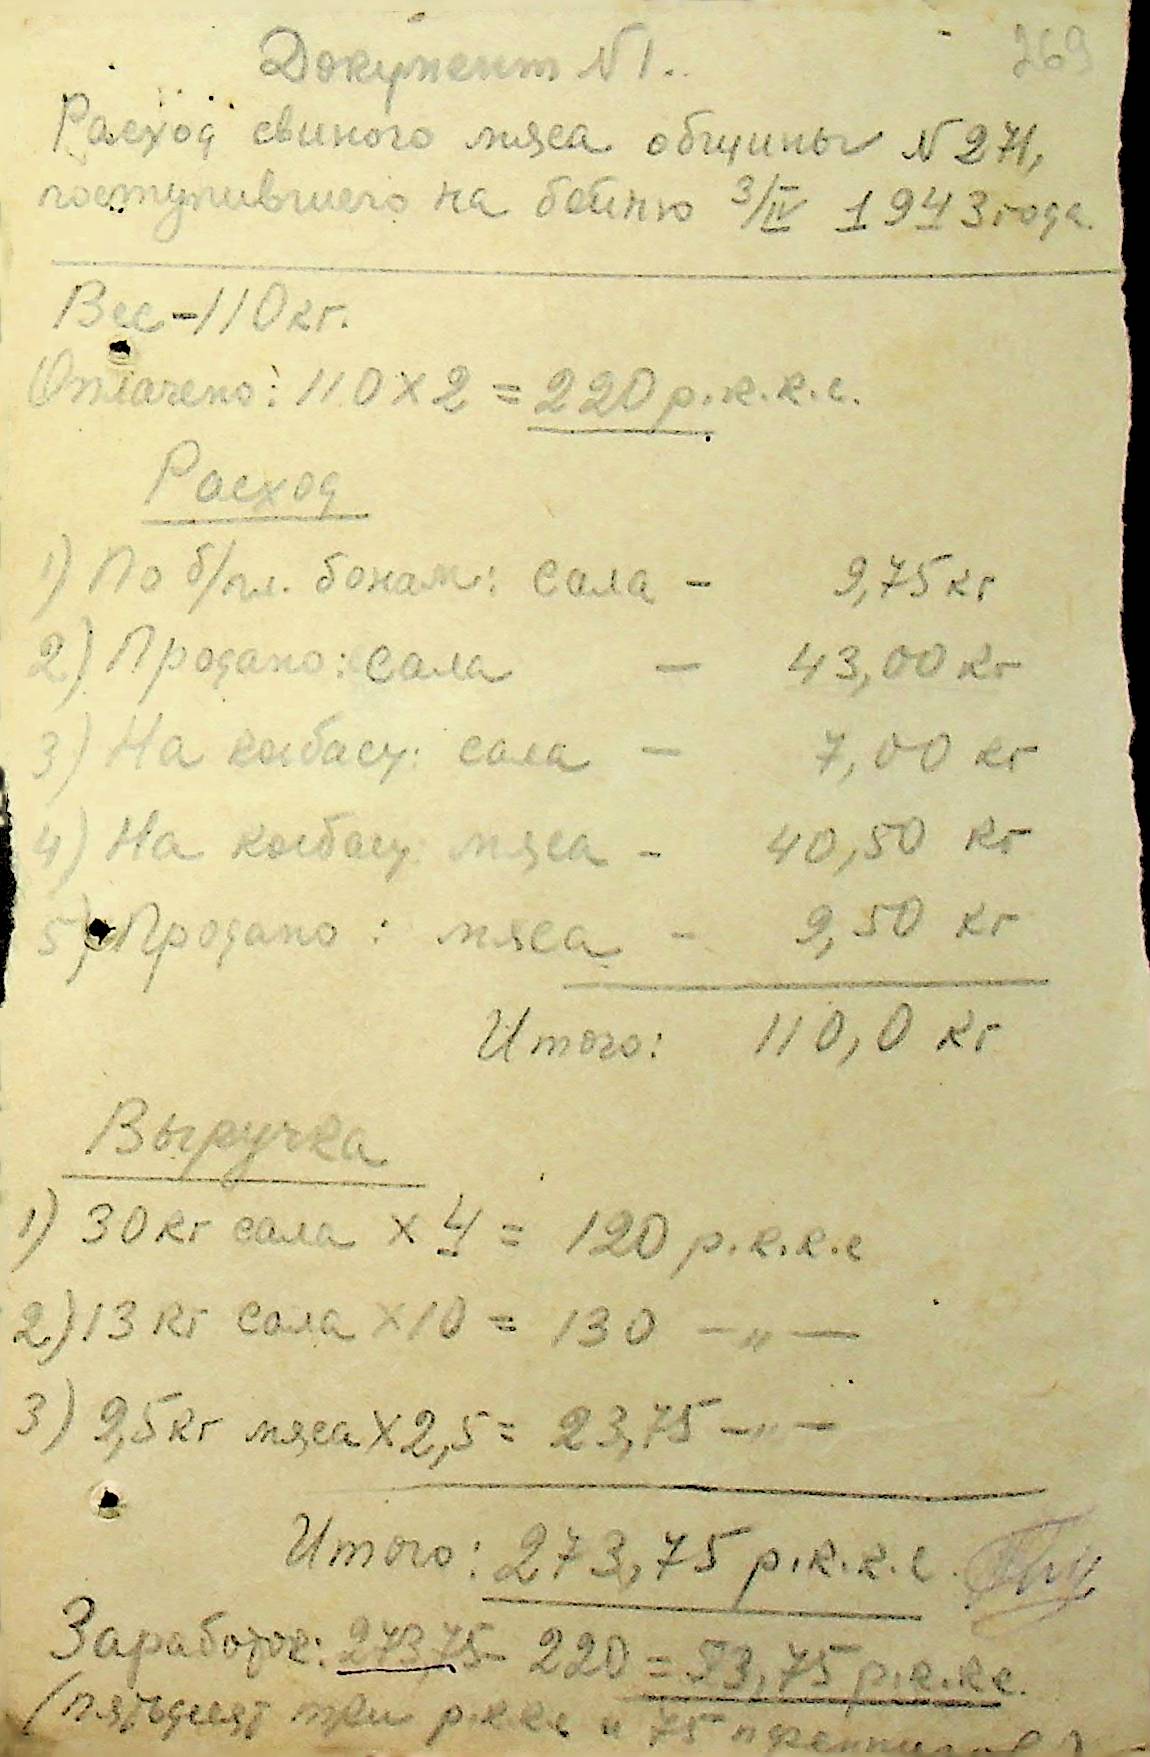 269
Документ N 1.
Расход свиного мяса общины N 271,
поступившего на бойню 3/IV 1943 года.
Вес - 110 кг.
Оплачено: 110 х 2 = 220 р.к.к.с.
Расход
1) По б/пл. бонам: сала - 9,75 кг
2) Продано: сала - 43,00 кг
3) На колбасу: сала - 7,00 кг
4) На колбасу мяса - 40,50 кг
5) Продано: мяса - 9,50 кг
Итого: 110,0 кг
Выручка
1) 30 кг сала х 4 = 120 р.к.к.с
2) 13 кг сала х 10 = 130 -"-
3) 9,5 кг мяса х 2,5 = 23,75 -"-
Итого: 273,75 р.к.к.с.
Заработок: 273,75 - 220 = 53,75 р.к.кс.
(пятьдесят три р.к.кс и 75 пфеннигов)